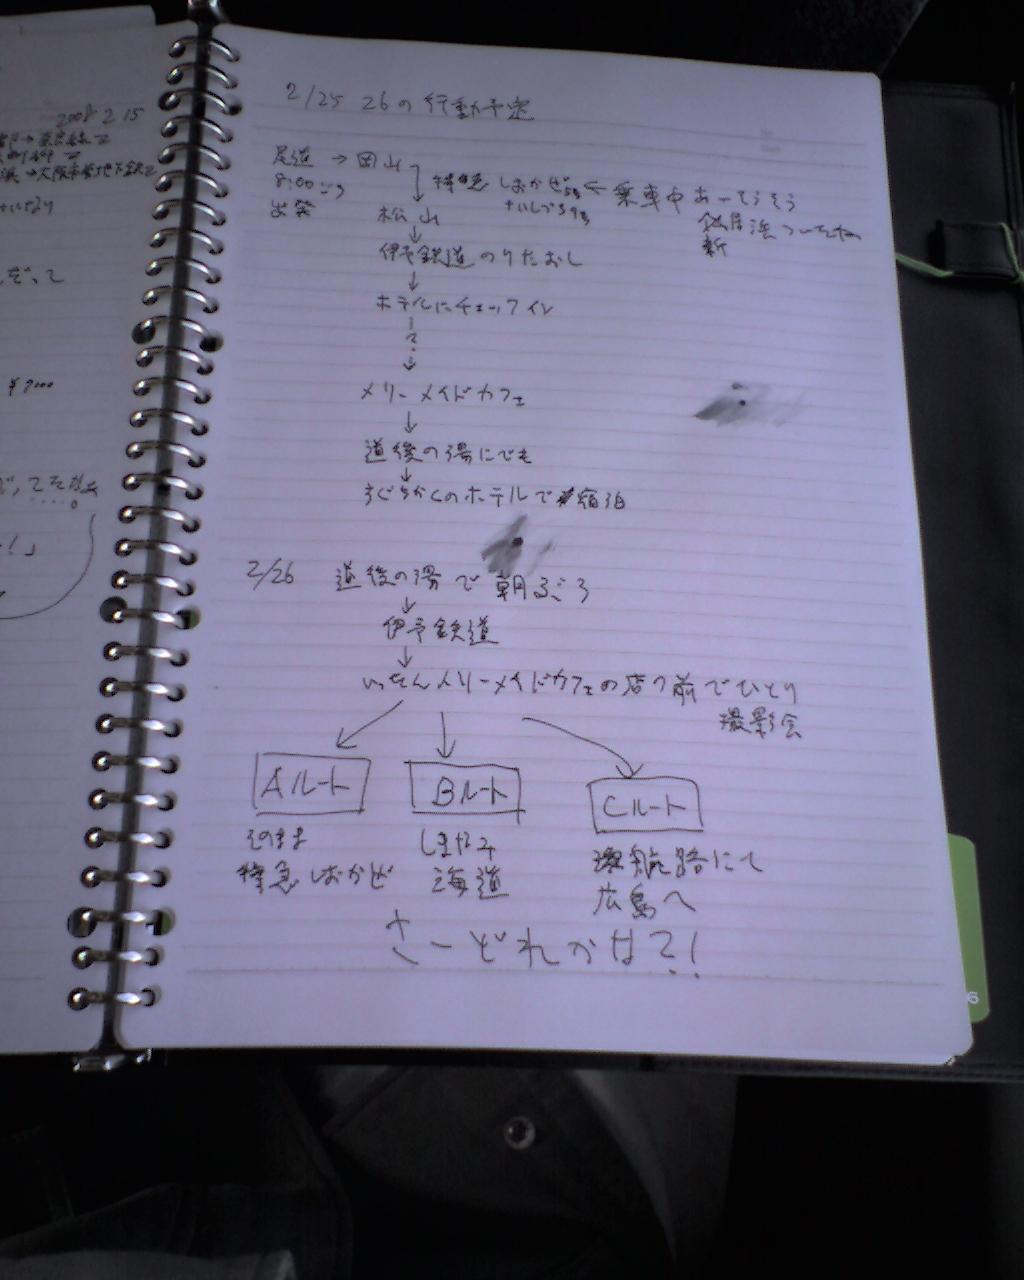 2008 2 15
¥9000
2/25 26の行動予定
尾道 → 岡山
8:00ごろ
出発
特急 しおかぜ ← 乗車中あーそうそう
新居浜ついたね
松山
↓
伊予鉄道のりたおし
↓
ホテルにチェックイン
↓
メリーメイドカフェ
↓
道後の湯にでも
↓
すぐちかくのホテルで宿泊
2/26 道後の湯で朝ぶろ
↓
伊予鉄道
↓
いったんメリーメイドカフェの店の前でひとり
撮影会
Aルート Bルート Cルート
そのまま
特急しおかぜ
しまなみ
海道
航路にて
広島へ
さーどれかな?!
6